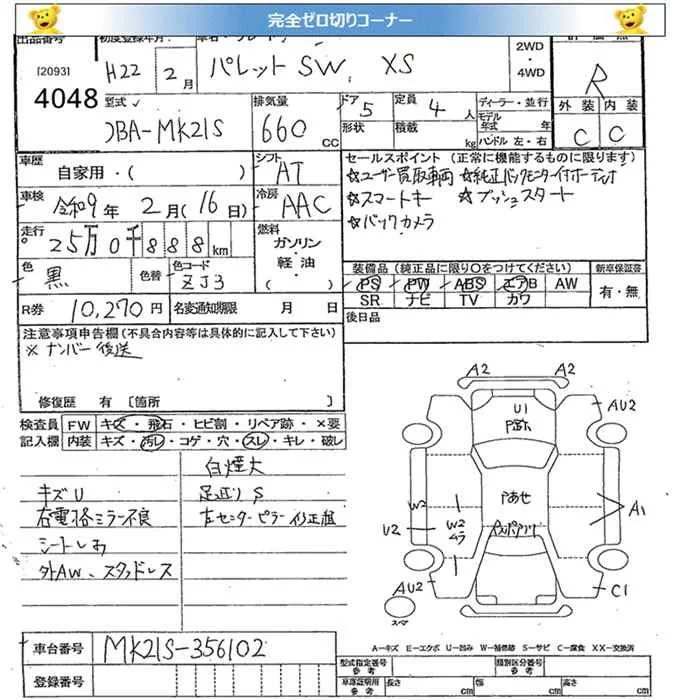 完全ゼロ切りコーナー
出品番号 初度登録年月
[2093]
4048
H22 2月
パレット SW XS
2WD
・
4WD
R
外装 内装
C C
型式
DBA-MK21S
排気量
660 cc
ドア 5
定員 4人
形状
積載 kg
ディーラー・並行
モデル年式 年
ハンドル 左・右
車歴
自家用・( )
シフト
AT
車検
令和9年 2月(16日)
冷房
AAC
走行
25万0千888km
燃料
ガソリン・軽油・( )
色
黒
色替
色コード
ZJ3
R券
10,270円
名変通知期限 月 日
セールスポイント (正常に機能するものに限ります)
☆ユーザー買取車両 ☆純正バックモニター付オーディオ
☆スマートキー ☆プッシュスタート
☆バックカメラ
装備品 (純正品に限り〇をつけてください)
PS PW ABS エアB AW
SR ナビ TV カワ
新車保証書
有・無
後日品
注意事項申告欄 (不具合内容等は具体的に記入して下さい)
※ナンバー後送
修復歴 有 〔箇所
検査員記入欄
FW キズ・飛石・ヒビ割・リペア跡・×要
内装 キズ・汚レ・コゲ・穴・スレ・キレ・破レ
白煙大
キズU
足廻りS
右電格ミラー不良
左センターピラー修正歴
シートしみ
外AW、スタッドレス
A2 A2
U1
AU2
W2
W2
ムラ
U2
A1
AU2
C1
スペア
車台番号
MK21S-356102
登録番号
A－キズ E－エクボ U－凹み W－補修跡 S－サビ C－腐食 XX－交換済
型式指定番号 参考
類別区分番号 参考
車庫証明用 参考
長さ cm
幅 cm
高さ cm